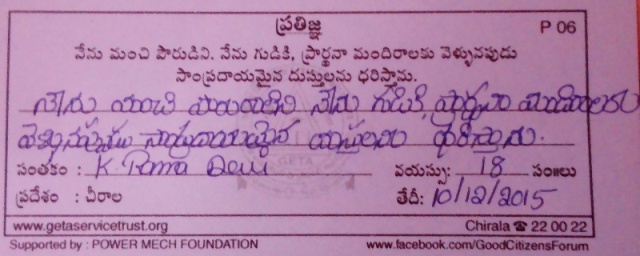 ప్రతిజ్ఞ
P 06
నేను మంచి పౌరుడిని. నేను గుడికి, ప్రార్థనా మందిరాలకు వెళ్ళునపుడు
సాంప్రదాయమైన దుస్తులను ధరిస్తాను.
నేను మంచి పౌరురాలిని నేను గుడికి, ప్రార్థనా మందిరాలకు
వెళ్ళునప్పుడు సాంప్రదాయమైన దుస్తులను ధరిస్తాను.
సంతకం : K. Rama Devi వయస్సు: 18 సం॥లు
ప్రదేశం : చీరాల తేదీ: 10/12/2015
www.getaservicetrust.org Chirala ☎ 22 00 22
Supported by : POWER MECH FOUNDATION www.facebook.com/GoodCitizensForum